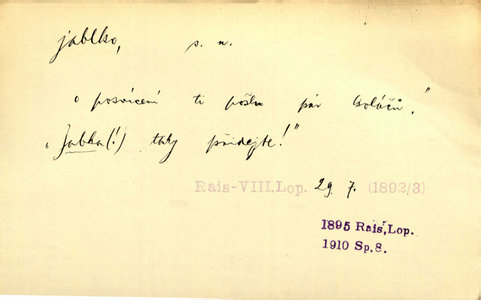 jablko, s. n.
„o posvícení ti pošlu pár koláčů.“
„Jabka(!) taky přidejte!“
Rais-VIII, Lop. 29 7. (1892/3)
1895 Rais, Lop.
1910 Sp. 8.